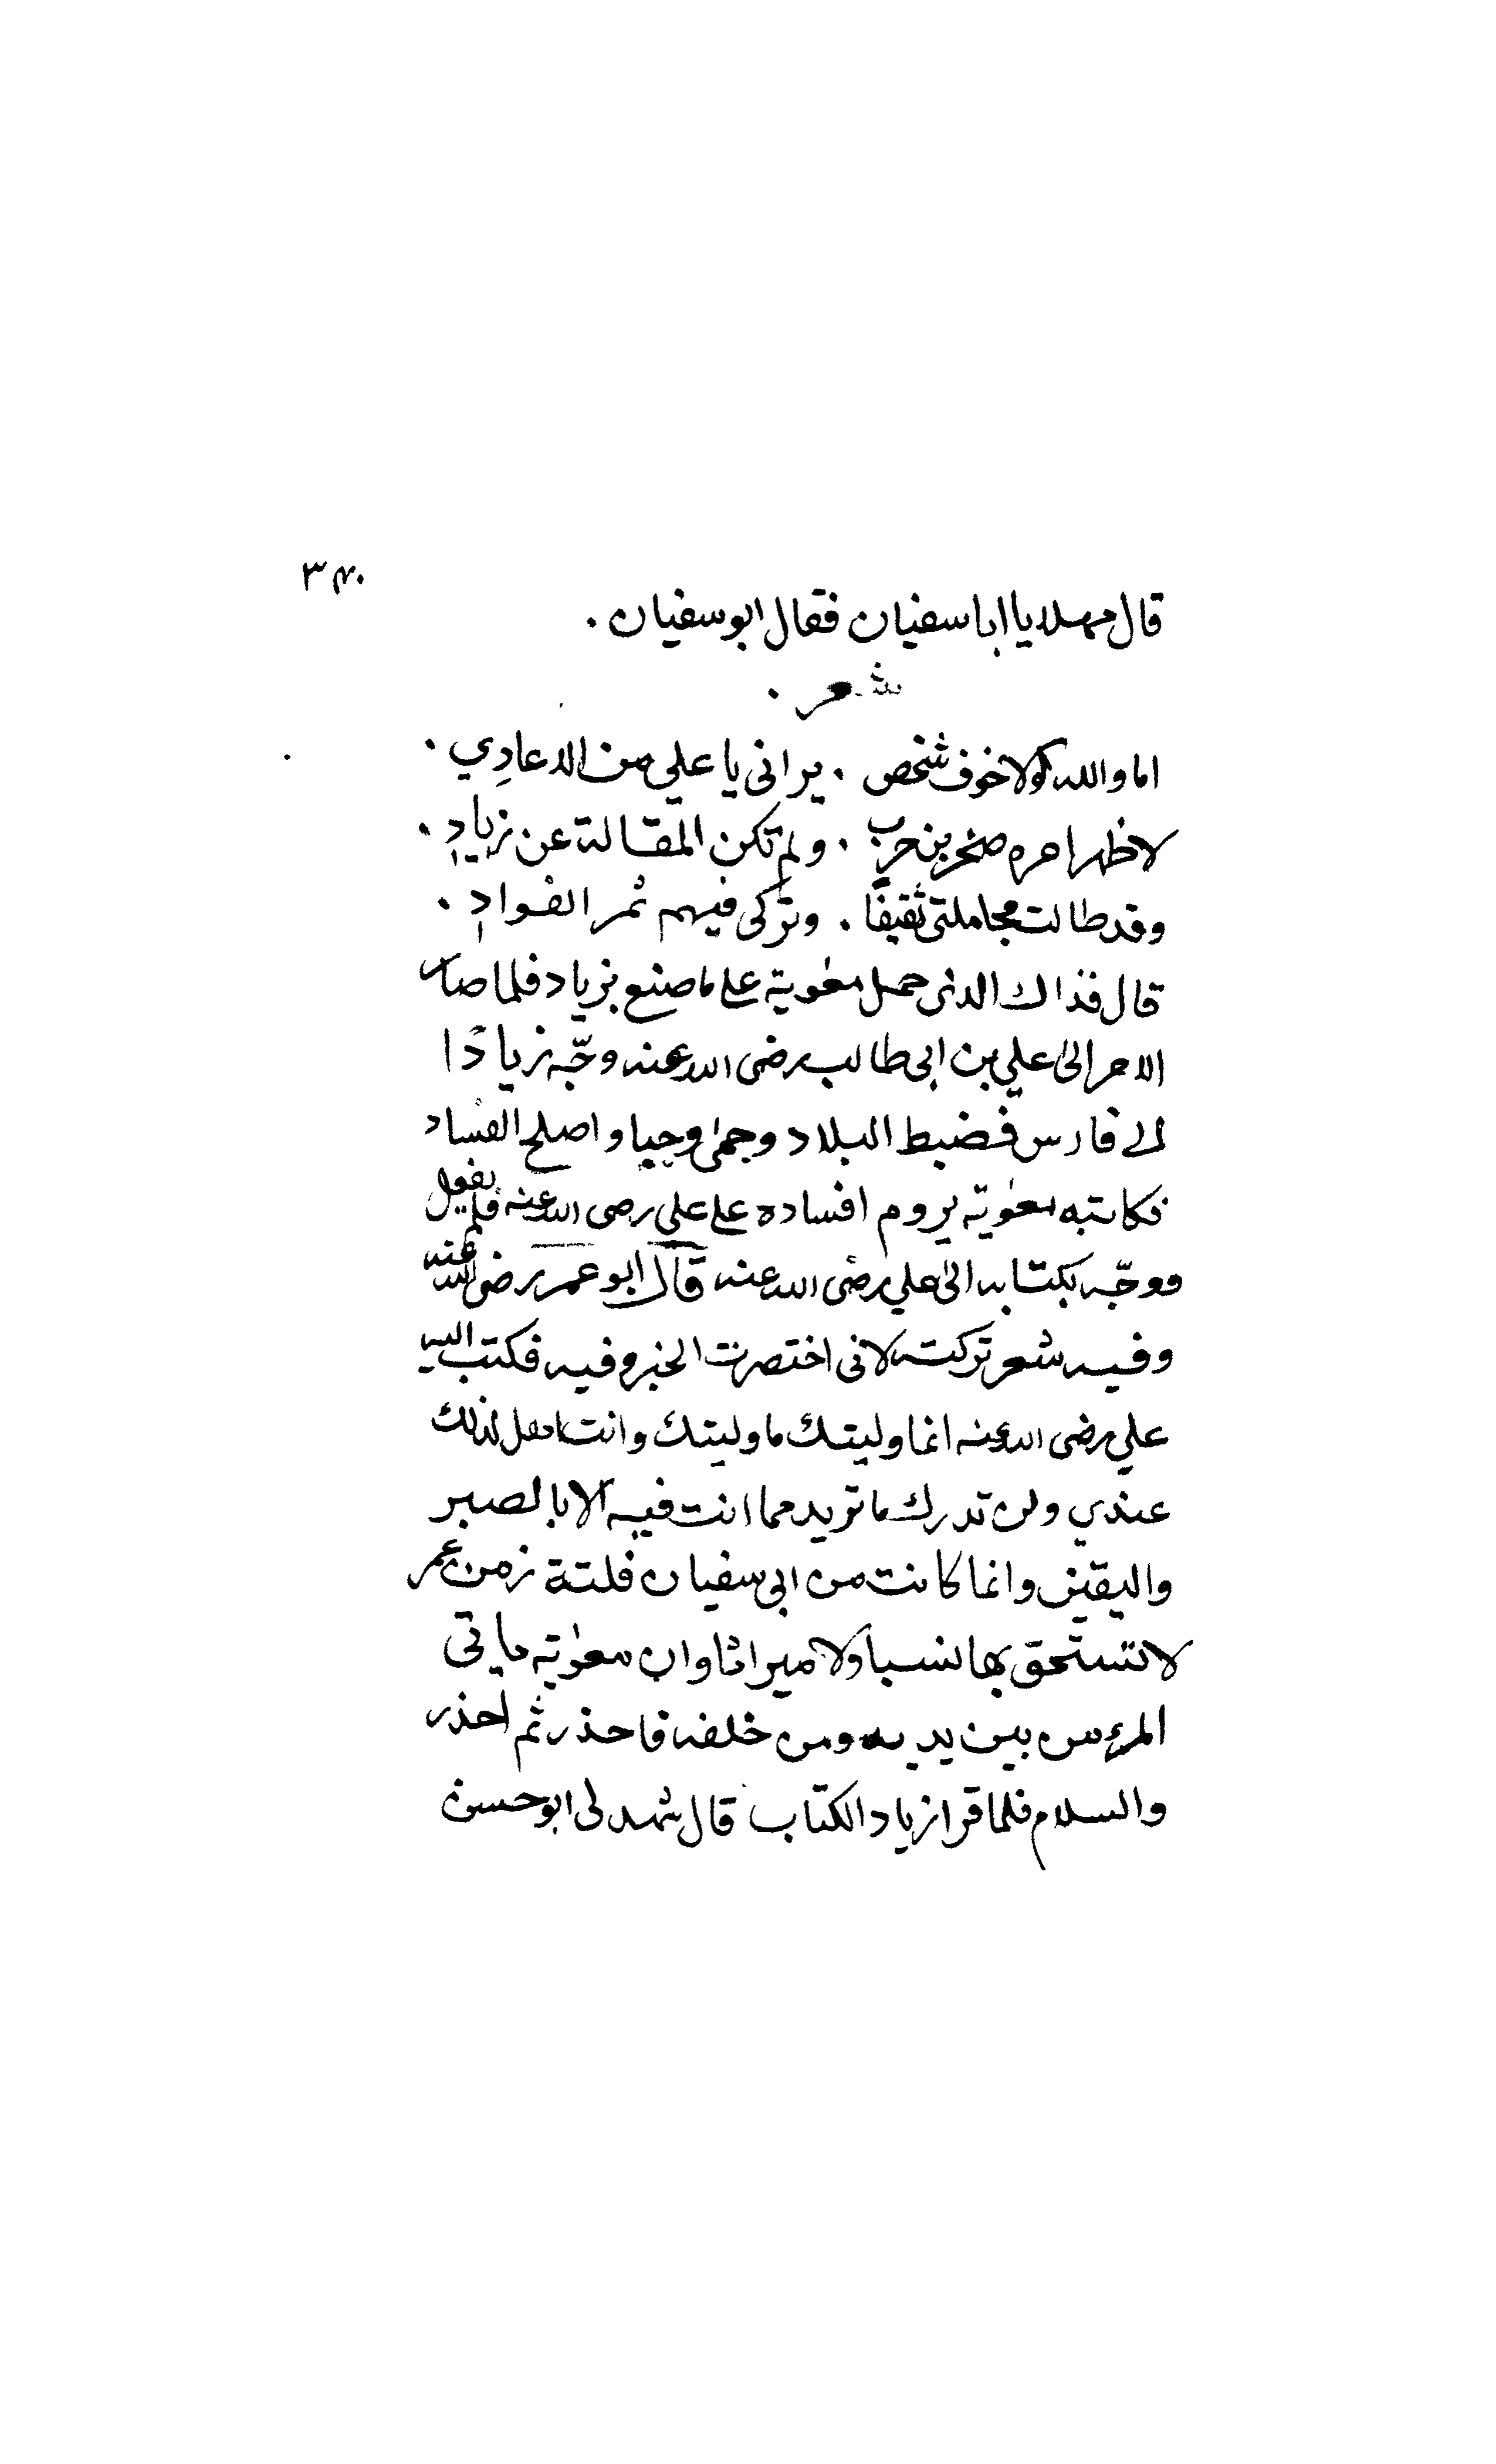 ٣٤٠
قال مهلا يا ابا سفيان فقال ابو سفيان .
شعر .
اما والله لولا خوف شخص . يراني يا علي من الاعادِي .
لاظهر امره صخر بن حرب . ولم تكن المقالة عن زيادِ .
وقد طالت مجاملتي ثقيفًا . وتركي فيهم ثمر الفوادِ .
قال فذاك الذي حمل معٰوية على ما صنع بزياد فلما صار
الامر الى علي بن ابي طالب رضى الله عنه وجّه زيادًا
الى فارس فضبط البلاد وحمى وجبا واصلح الفساد
فكاتبه معٰوية يروم افساده على علي رضى الله عنه فلم يفعل
فوجّه بكتابه الى علي رضى الله عنه قال ابو عمر رضى الله عنه
وفيه شعر تركته لاني اختصرت الخبر وفيه فكتب اليه
علي رضى الله عنه انما وليتك ما وليتك وانت اهل لذلك
عندي ولن تدرك ما تريد مما انت فيه الا بالصبر
واليقين وانما كانت من ابي سفيان فلتة زمن عمر
لا تستحق بها نسبا ولا ميراثا وان معٰوية ياتى
المرء من بين يديه ومن خلفه فاحذر ثم احذر
والسلام فلما قرا زياد الكتاب قال شهد لي ابو حسن